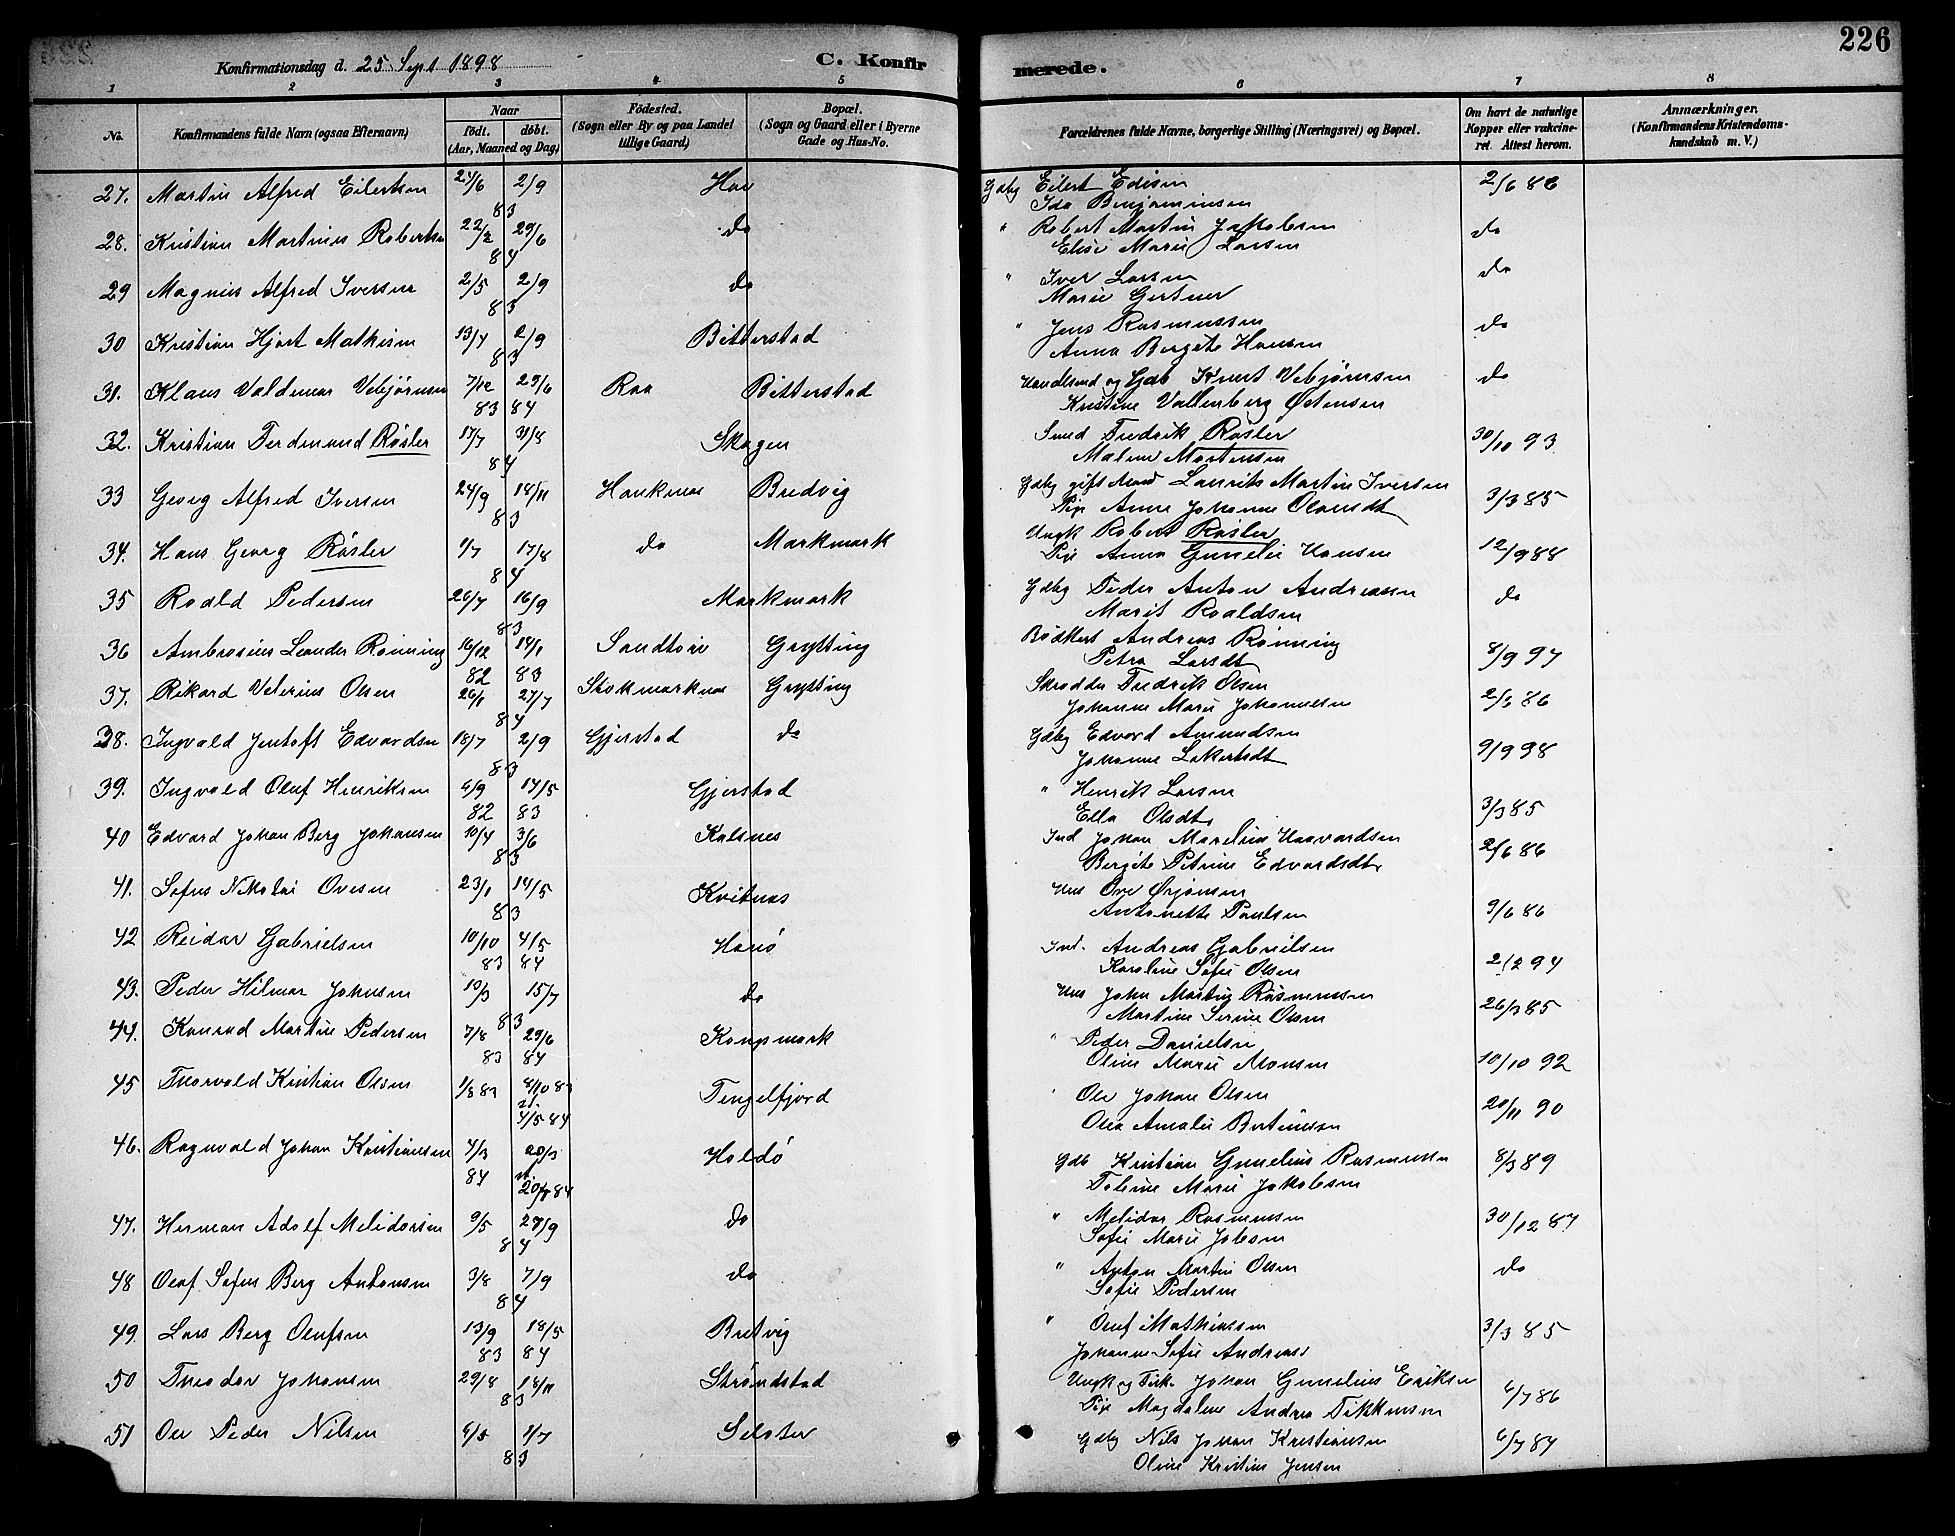 226
Konfirmationsdag d. 25 Sept 1898
C. Konfirmerede.
1 2 3 4 5 6 7 8
No.
Konfirmandens fulde Navn (ogsaa Efternavn)
Naar
født. døbt.
(Aar, Maaned og Dag)
Fødested.
(Sogn eller By og paa Landet
tillige Gaard)
Bopæl.
(Sogn og Gaard eller i Byerne
Gade og Hus-No.
Forældrenes fulde Navne, borgerlige Stilling (Næringsvei) og Bopæl.
Om havt de naturlige
Kopper eller vakcine-
ret. Attest herom.
Anmærkninger.
(Konfirmandens Kristendoms-
kundskab m. V.)
27. Martin Alfred Eilertsen 24/6 2/9 83 Hav Gdbg Eilert Edisen
Ida Benjaminsen 2/6 86
28. Kristian Martinus Robertsen 22/2 29/6 84 do " Robert Martin Jakobsen
Elise Marie Larsen do
29 Magnus Alfred Iversen 2/5 2/9 83 do " Iver Larsen
Marie Gertner do
30 Kristian Hjort Mathisen 13/4 2/9 83 Bitterstad " Jens Rasmussen
Anna Bergete Hansen do
31. Klaus Valdemar Vebjørnsen 7/12 83 29/6 84 Raa Bitterstad Handlsmd og Gdb Knut Vebjørnsen
Kristine Vallenberg Østensen do
32. Kristian Ferdinand Røsler 17/7 31/8 84 Skagen Smed Fredrik Røsler
Malene Mortensen 30/10 93
33 Georg Alfred Iversen 24/9 18/11 83 Hauknes Bredvig Gdbg gift Mand Laurits Martin Iversen
Pige Anne Johanne Olsendt 3/3 85
34. Hans Georg Røsler 1/7 17/8 84 do Markmark Ungk Robert Røsler
Pige Anna Gunelie Hansen 12/9 88
35 Roald Pedersen 26/7 16/9 83 Markmark Gdbg Peder Anton Andreassen
Marit Roaldsen do
36 Ambrosius Leander Rønning 16/12 82 14/1 83 Sandtorv Grytting Bødkert Andreas Rønning
Petra Larsdt 8/9 97
37. Rikard Velerius Olsen 26/1 27/7 84 Stokmarknes Grytting Skrædder Fredrik Olsen
Johanne Marie Johannesen 2/6 86
38. Ingvald Jentoft Edvardsen 18/7 2/9 83 Gjerstad do Gdbg Edvard Amundsen
Johanne Lakertsdt 9/9 98
39. Ingvald Oluf Henriksen 6/9 82 17/5 83 Gjerstad " Henrik Larsen
Ella Olsdt 3/3 85
40 Edvard Johan Berg Johansen 10/4 3/6 83 Kalsnes Ind Johan Marelius Haavardsen
Bergete Petrine Edvardsdt 2/6 86
41. Sofus Nikolai Ovesen 23/1 14/5 83 Kvitnes Hus Ove Ørjansen
Antonette Paulsen 9/6 86
42 Reidar Gabrielsen 10/10 83 4/5 84 Hanø Ind. Andreas Gabrielsen
Karoline Sofie Olsen 2/2 94
43. Peder Hilmar Johnsen 10/3 15/7 83 do Hus John Martin Rasmussen
Martine Serine Olsen 26/3 85
44. Konrad Martin Pedersen 7/8 83 29/6 84 Kongsmark " Peder Danielsen
Oline Marie Monsen 10/10 92
45 Thorvald Kristian Olsen 1/8 83 8/10 83 st. 4/5 84 Tengelfjord " Ole Johan Olsen
Olea Amalie Bertinussen 20/11 90
46. Ragnvald Johan Kristiansen 4/3 84 20/3 st. 20/7 84 Holdø Gdb Kristian Gunelius Rasmussen
Toline Marie Jakobsen 8/3 89
47. Herman Adolf Melidorsen 9/5 27/9 84 do " Melidor Rasmussen
Sofie Marie Jobsen 30/12 87
48 Olaf Sofus Berg Antonsen 3/8 7/9 84 do " Anton Martin Olsen
Sofie Pedersen do
49. Lars Berg Olufsen 13/9 83 18/5 84 Bretvig " Oluf Mathiassen
Johanne Sofie Andreas 3/3 85
50 Theodor Johansen 29/8 18/11 83 Strøndstad Ungk og Fisk. Johan Gunelius Eriksen
Pige Magdalene Andrea Fikkensen 6/7 86
51 Ole Peder Nilsen 6/5 1/7 83 Selster Gdbg Nils Johan Kristiansen
Oline Kristine Jensen 6/7 84